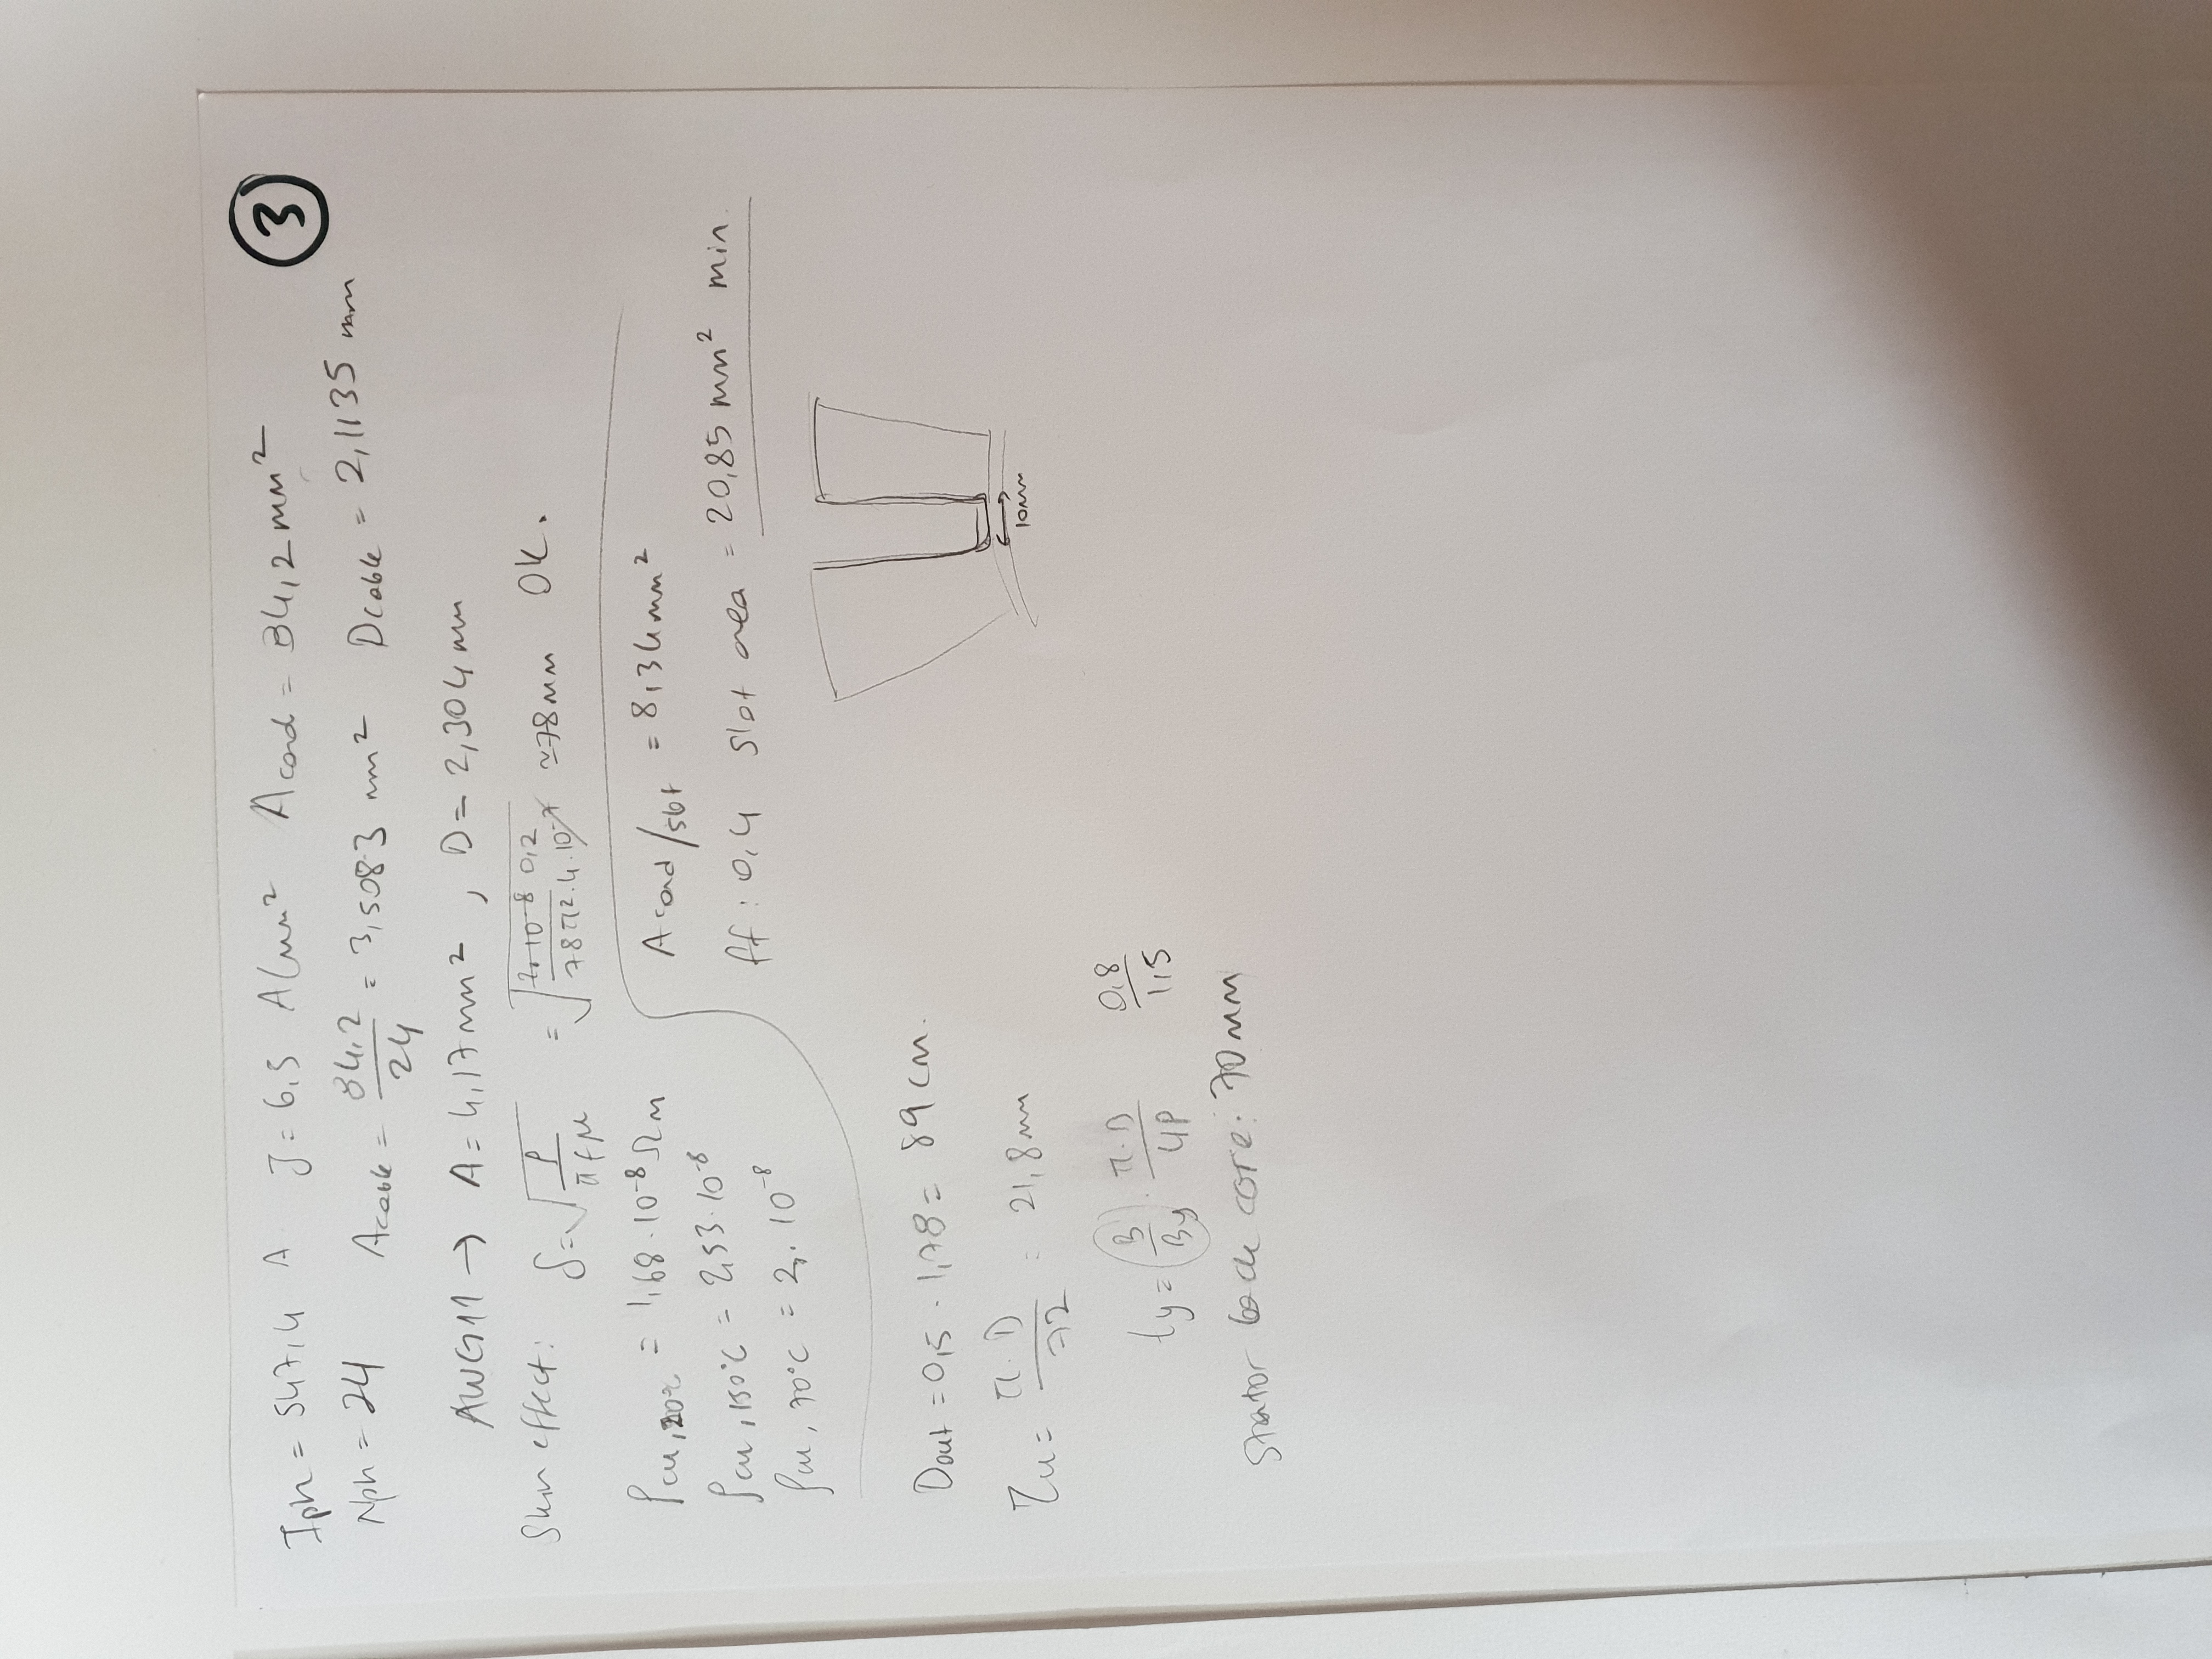 ③
Iph = 547,4 A J = 6,5 A/mm² Acond = 84,2 mm²
Nph = 24 Acable = 84,2 / 24 = 3,5083 mm² Dcable = 2,1135 mm
AWG11 → A = 4,17 mm² , D = 2,304 mm
Skin effect: δ = √(ρ / πfμ) = √(0,2 / 78π².4.10⁻⁷) ≃ 78mm OK.
ρcu,20°C = 1,68.10⁻⁸ Ωm
ρcu,150°C = 2,53.10⁻⁸
ρcu,70°C = 2,.10⁻⁸
Acond/slot = 8,34mm²
ff : 0,4 slot area = 20,85 mm² min.
10mm
Dout = 0,5 . 1,78 = 89 cm.
τu = π.D / 72 = 21,8mm
ty = B / By . π.D / 4P 0,8 / 1,5
Stator back core: 70mm